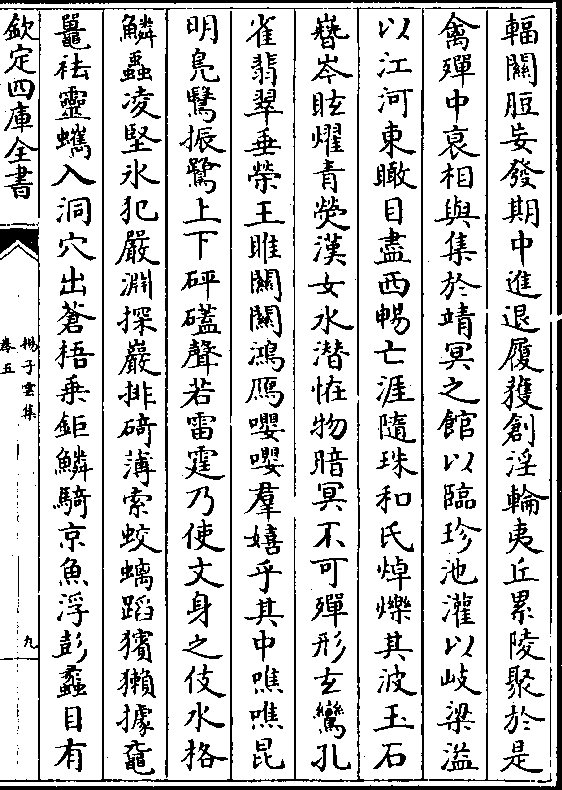 輻關脰妄發期中進退履獲創淫輪夷丘累陵聚於是
禽殫中衰相與集於靖冥之館以臨珍池灌以岐梁溢
以江河東瞰目盡西暢亡涯隨珠和氏焯爍其波玉石
嶜岑眩燿青熒漢女水潛怪物暗冥不可殫形玄鸞孔
雀翡翠垂榮王雎關關鴻鴈嚶嚶羣嬉乎其中噍噍昆
明鳧鷖振鷺上下砰礚聲若雷霆乃使文身之伎水格
鱗蟲凌堅氷犯嚴淵探巖排碕薄索蛟螭蹈獱獺據黿
鼉袪靈蠵入洞穴出蒼梧乘鉅鱗騎京魚浮彭蠡目有
欽定四庫全書
揚子雲集
卷五
九